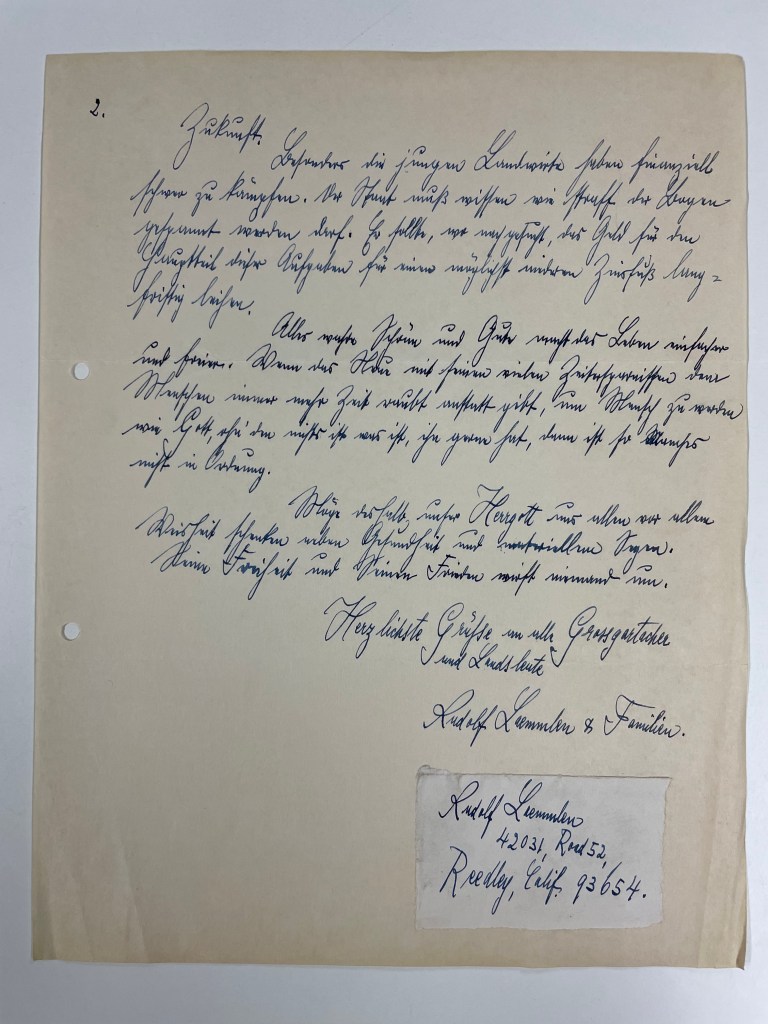 2.
Zukunft.
Besonders die jungen Landwirte haben finanziell
schwer zu kämpfen. Der Staat muß wissen wie straff der Bogen
gespannt werden darf. Er sollte, wo nachgesucht, das Geld für den
Hauptteil dieser Aufgaben für einen möglichst niederen Zinsfuß lang=
fristig leihen.
Alles wahre Schöne und Gute macht das Leben einfacher
und freier. Wenn das Neue mit seinen vielen Zeitersparnissen dem
Menschen immer mehr Zeit raubt anstatt gibt, um Mensch zu werden
wie Gott, ohne den nichts ist was ist, ihn gerne hat, dann ist so Manches
nicht in Ordnung.
Möge deshalb unser Herrgott uns allen vor allem
Weisheit schenken neben Gesundheit und materiellem Segen.
Seine Freiheit und Seinen Frieden wirft niemand um.
Herzlichste Grüsse an alle Grossgartacher
und Landsleute
Rudolf Laemmlen & Familien.
Rudolf Laemmlen
42031, Road 52,
Reedley, Calif. 93654.